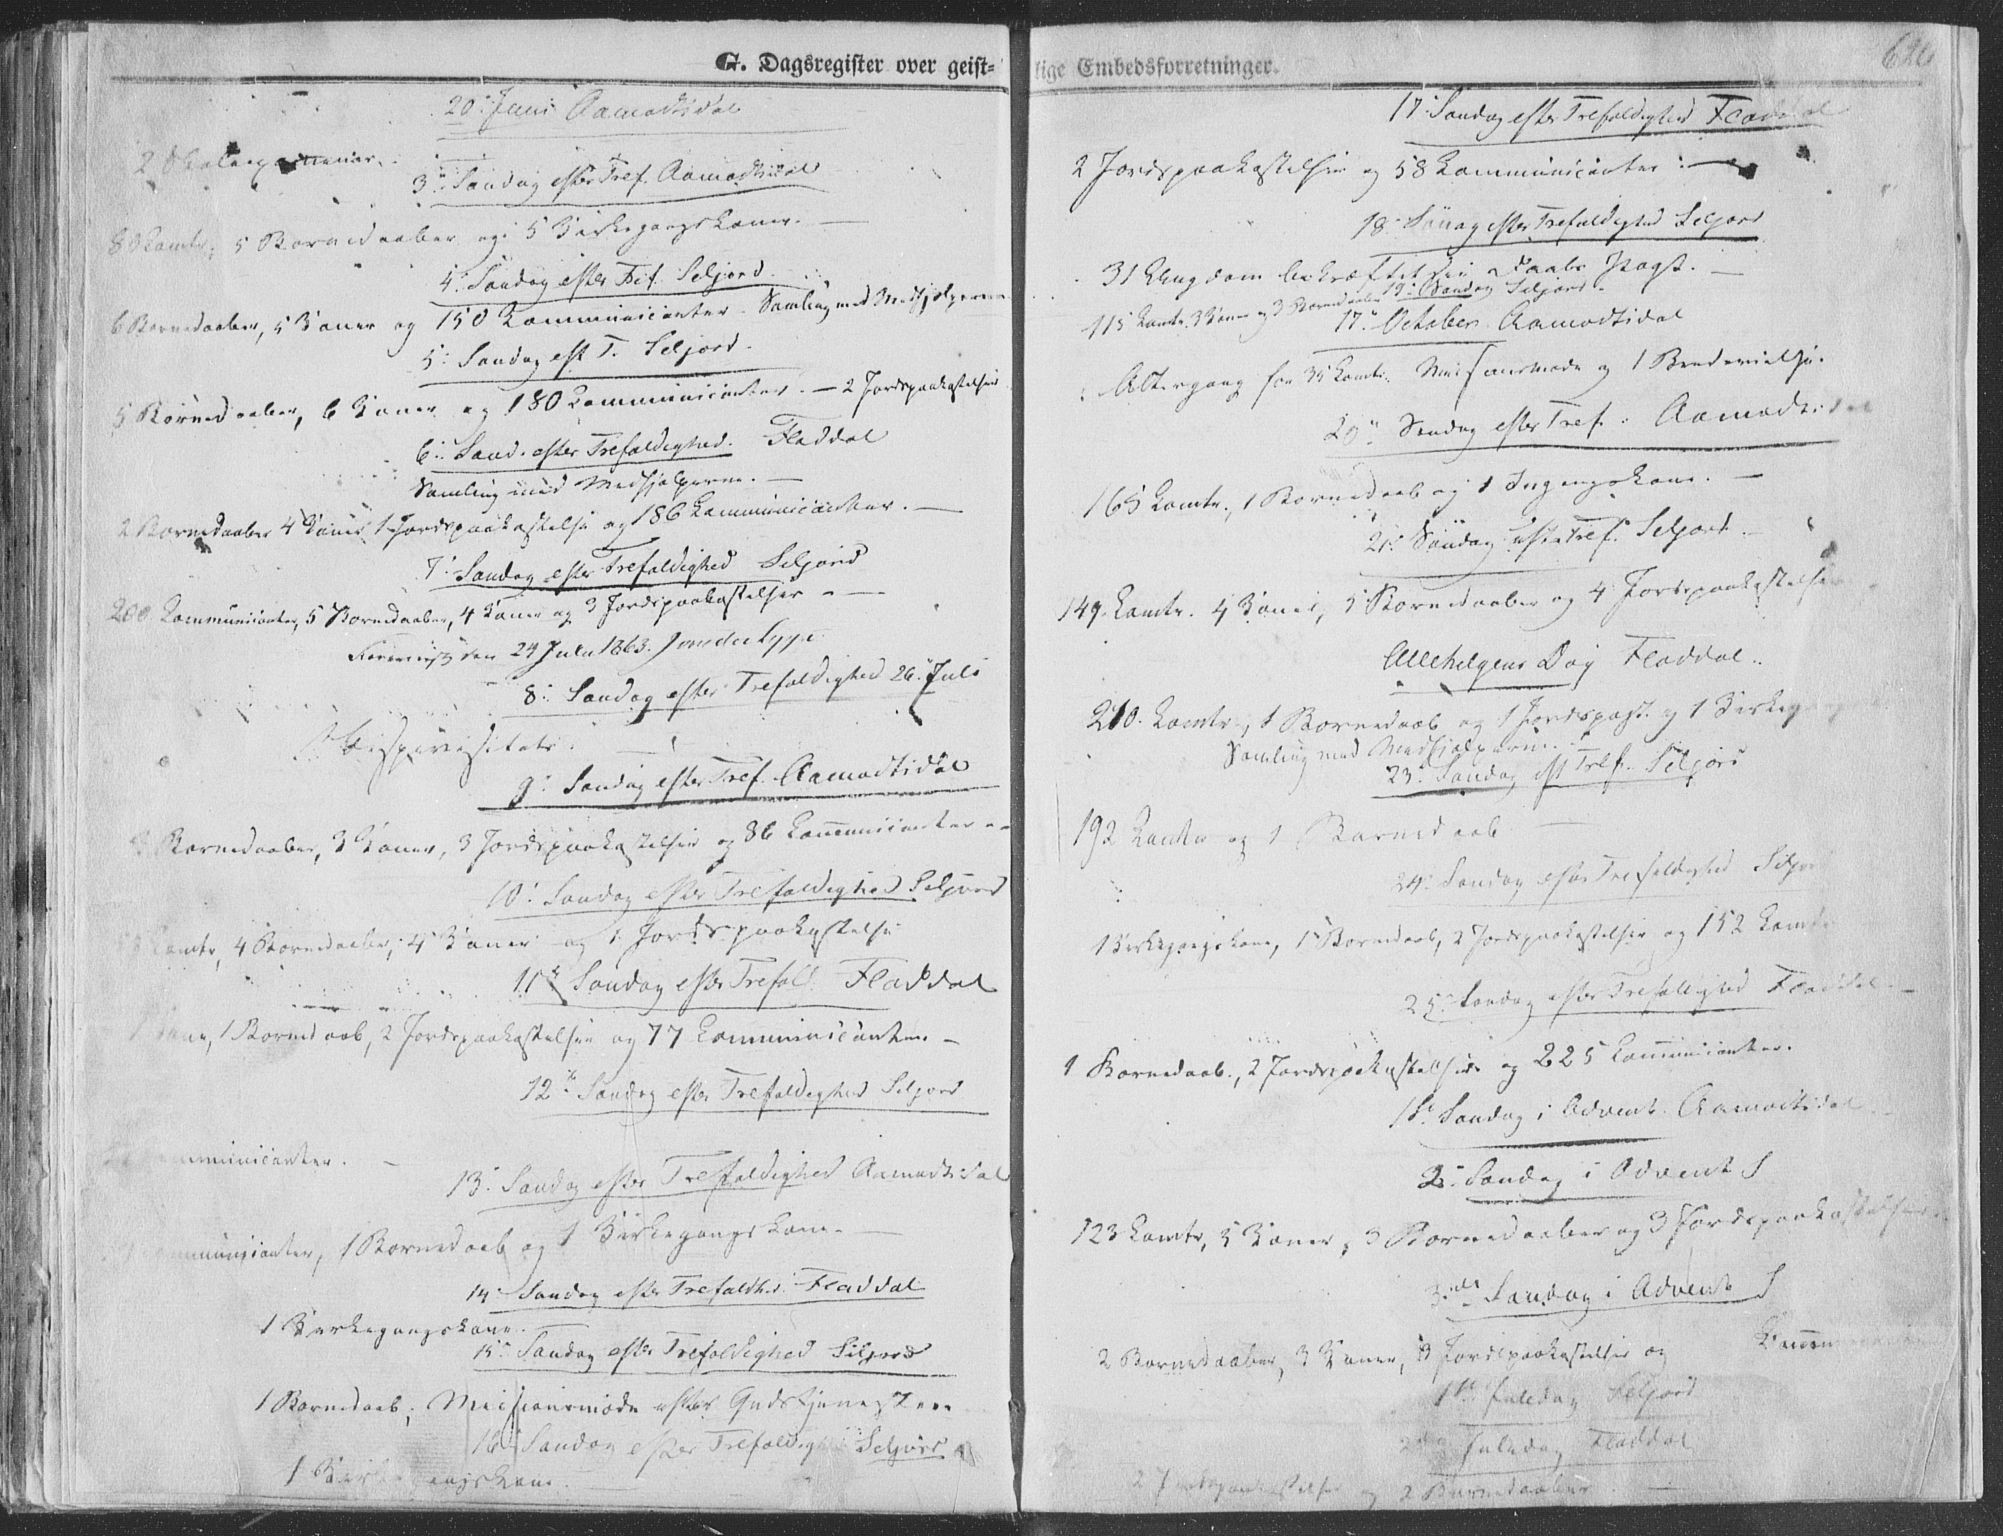 G. Dagsregister over geist-
20de Juni Aamodtsdal
2
3die Søndag efter Tref. Aamodtsdal
8 Comtr; 5 Børnedaaber og 5 Kirkegangskoner. —
4de Søndag efter Tref. Seljord.
6 Børnedaaber, 5 Koner og 150 Communicanter. Samling med Medhjelperne
5te Søndag eft T. Seljord.
5 Børnedaaber, 6 Koner og 180 Communicanter. — 2 Jordspaakastelser
6te Sønd. efter Trefoldighed. Fladdal
Samling med Medhjælperne. —
2 Børnedaaber 4 Koner 1 Jordspaakastelse og 186 Communicanter. —
7de Søndag efter Trefoldighed Seljord
200 Communicanter, 5 Børnedaaber, 4 Koner og 3 Jordspaakastelser —
den 24 Juli 1863.
8de Søndag efter Trefoldighed 26de Juli
Bispevisitats. —
9de Søndag efter Tref. Aamodtsdal
Børnedaaber, 3 Koner, 3 Jordspaakastelser og 86 Communicanter —
10de Søndag efter Trefoldighed Seljord
Comtr, 4 Børnedaaber, 4 Koner og 1 Jordspaakastelse
11te Søndag efter Trefold. Fladdal
1 Kone, 1 Barnedaab, 2 Jordspaakastelser og 77 Communicanter —
12te Søndag efter Trefoldighed Seljord
Communicanter. —
13de Søndag efter Trefoldighed Aamodtsdal
Communicanter, 1 Barnedaab og 1 Kirkegangskone. —
14de Søndag efter Trefoldhed. Fladdal
1 Kirkegangskone. —
15de Søndag efter Trefoldighed Seljord
1 Barnedaab; Missionsmøde efter Gudstjenesten
16de Søndag efter Trefoldighed Seljord
1 Kirkegangskone. —
lige Embedsforretninger.
626
17de Søndag efter Trefoldighed Fladdal
2 Jordspaakastelser og 58 Communicanter. —
18de Søndag efter Trefoldighed Seljord
31 Ungdom bekræftet sin Daabs Pagt. —
19de Søndag Seljord.
115 Comtr. 3 Koner og 3 Børnedaaber
17de October Aamodtsdal
Altergang for 35 Comtr. Missionsmøde og 1 Brudevielse.
20de Søndag efter Tref. Aamodtsdal
165 Comtr., 1 Barnedaab og 1 Ingangskone. —
21de Søndag efter Tref. Seljord. —
149 Comtr. 4 Koner, 5 Børnedaaber og 4 Jordspaakastelser
Allehelgens Dag Fladdal.
210. Comtr, 1 Barnedaab og 1 Jordspast. og 1 Kirkeg
Samling med Medhjælperne.
23de Søndag eft Tref. Seljord
192 Comtr og 1 Barnedaab —
24de Søndag efter Trefoldighed Seljord
1 Kirkegangskone, 1 Barnedaab, 2 Jordspaakastelser og 152 Comtr
25de Søndag efter Trefoldighed Fladdal. —
1 Barnedaab., 2 Jordspaakastelser og 225 Communicanter.
1ste Søndag i Advent Aamodtsdal
2den Søndag i Advent S
123 Comtr, 5 Koner, 3 Børnedaaber og 3 Jordspaakastelser
3die Søndag i Advent S
2 Børnedaaber, 3 Koner, 3 Jordspaakastelser og Commun
1ste Juledag Seljord
2den Juledag Fladdal
2 Jordspaakastelser og 2 Børnedaaber. —